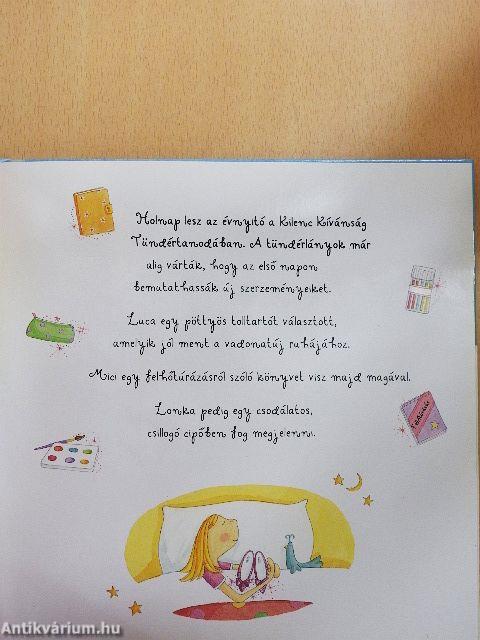 Holnap lesz az évnyitó a Kilenc Kívánság
Tündértanodában. A tündérlányok már
alig várták, hogy az első napon
bemutathassák új szerzeményeiket.
Luca egy pöttyös tolltartót választott,
amelyik jól ment a vadonatúj ruhájához.
Mici egy felhőtúrázásról szóló könyvet visz majd magával.
Lonka pedig egy csodálatos,
csillogó cipőben fog megjelenni.
Antikvárium.hu